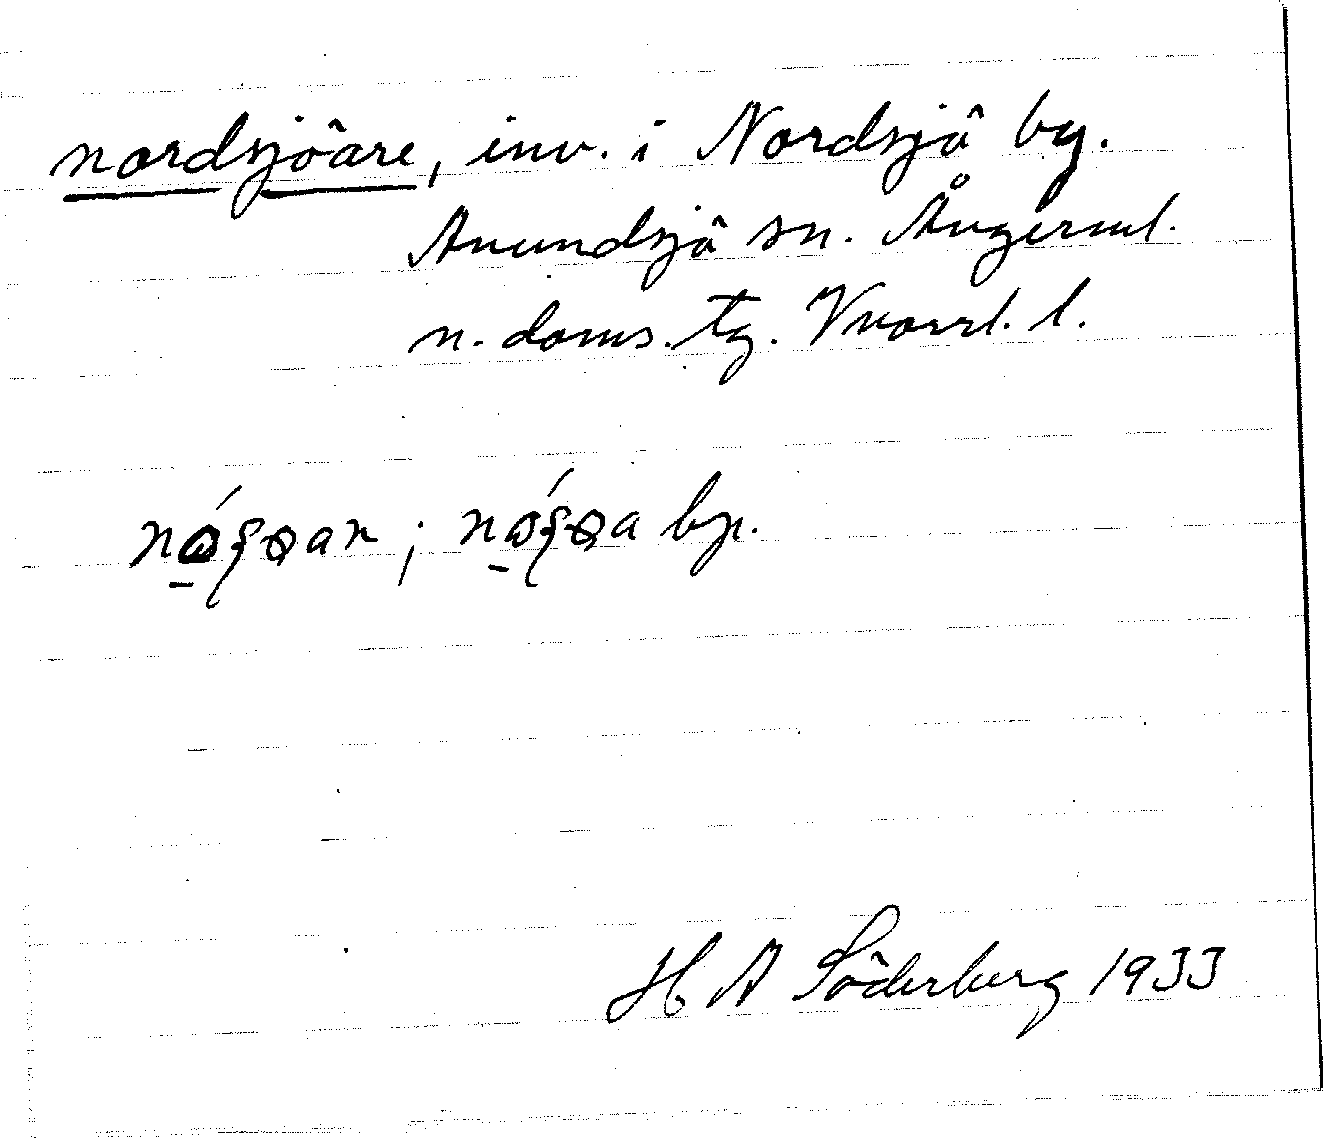 nordsjöare, inv. i Nordsjö by.
Anundsjö sn. Ångerml.
n. doms. tg. Vnorrl. l.
bp.
H A Söderberg 1933